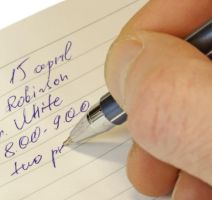 15 april
Robinson
White
800-900
two